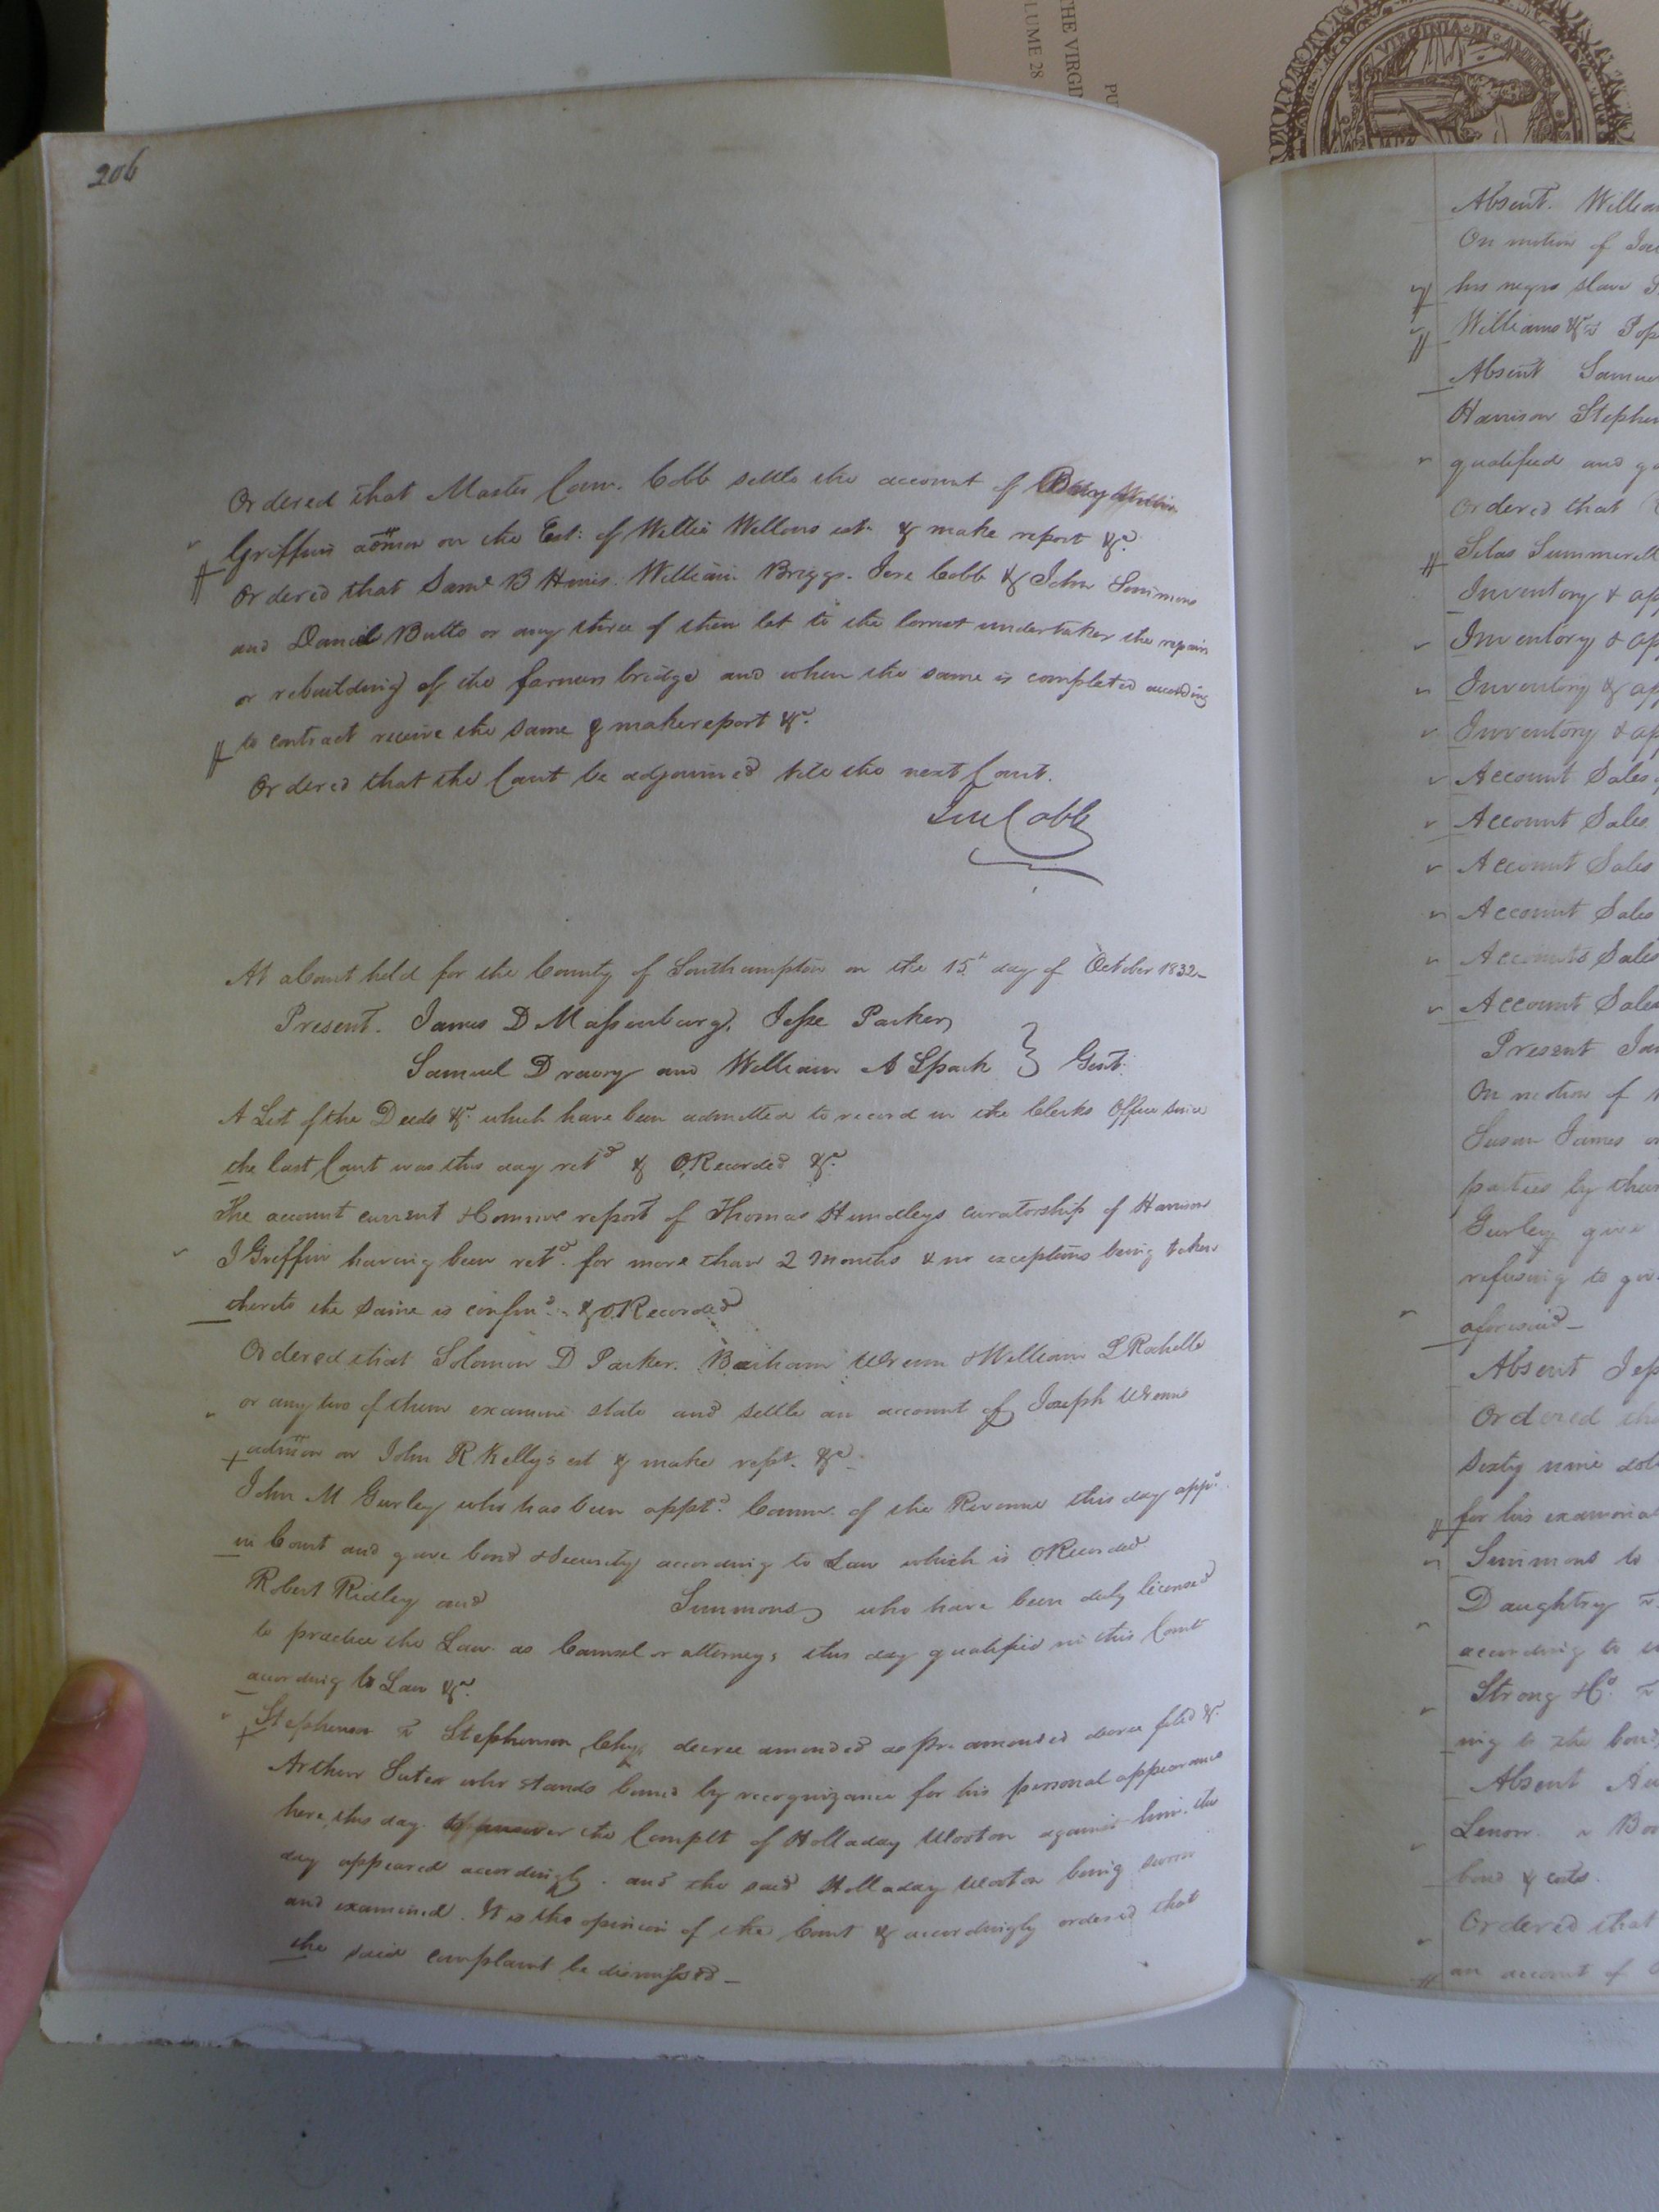 THE VIRGI
LUME 28
PU
VIRGINIA IN
206
Ordered that Master Com. Cobb settle the account of
Griffin admor on the Est: of Willie Wellons est. & make report &c.
Ordered that Saml. B Hines. William Briggs. Jere Cobb & John Simmons
and Daniel Butts or any three of them let to the lowest undertaker the repair
or rebuilding of the farmers bridge and when the same is completed according
to contract receive the same & make report &c.
Ordered that the Court be adjourned till the next Court.
Jere Cobb
At a Court held for the County of Southampton on the 15th day of October 1832
Present. James D Massenburg, Jesse Parker
Samuel Drewry and William A Spark } Gent:
A List of the Deeds &c. which have been admitted to record in the Clerks Office since
the last Court was this day retd & O.Recorded &c.
The account current & Commrs report of Thomas Hundleys curatorship of Harrison
J Griffin having been retd. for more than 2 months & no exceptions being taken
thereto the same is confirmd. & O.Recorded
Ordered that Solomon D Parker. Barham Wrenn & William L Rochelle
or any two of them examine state and settle an account of Joseph Wrenns
admon on John R Kelly's est & make rept. &c.
John M Gurley who has been apptd. Commr. of the Revenue this day appd.
in Court and gave bond & Security according to Law which is O.Recorded
Robert Ridley and Simmons who have been duly licensed
to practice the Law as Counsel or attorneys this day qualified in this Court
according to Law &c.
Stephenson vs Stephenson Chy. decree amended as pr amended decree filed &c.
Arthur Suter who stands bound by recognizance for his personal appearance
here, this day to answer the Complt of Holladay Wooton against him. this
day appeared accordingly. and the said Holladay Wooton being sworn
and examined. It is the opinion of the Court & accordingly ordered that
the said complaint be dismissed
Absent. William
On motion of
his negro slave
Williams &c vs Pop
Absent Samuel
Harrison Stephen
qualified and
Ordered that
Silas Summerell
Inventory & ap
Inventory & ap
Inventory & ap
Inventory & ap
Account Sales
Account Sales
Account Sales
Account Sales
Accounts Sales
Account Sales
Present
On motion of
Susan James
parties by their
Gurley give
refusing to
aforesaid
Absent Jess
Ordered
Sixty nine dol
for his examina
Simmons to
Daughtry vs
according to
Strong & Co. vs
ing to the bond
Absent
Lenow vs
bond & costs.
Ordered that
an account of